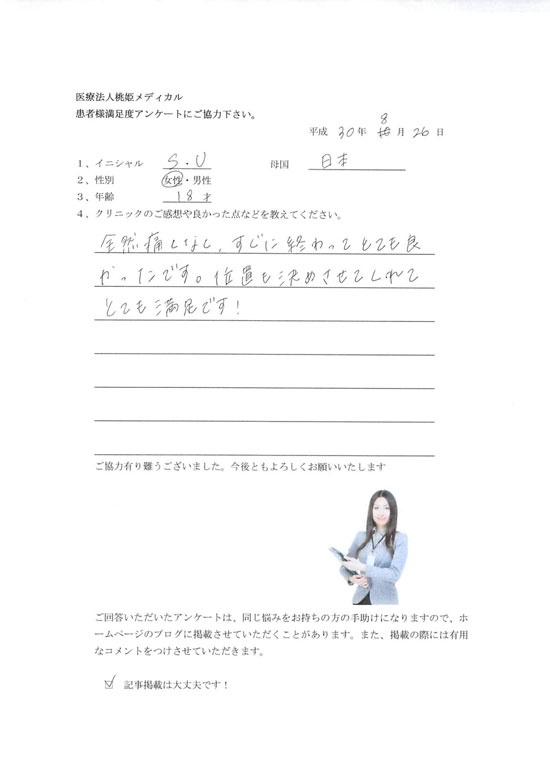 医療法人桃姫メディカル
患者様満足度アンケートにご協力下さい。
平成 30 年 8 月 26 日
1、イニシャル S・U 母国 日本
2、性別 女性・男性
3、年齢 18 才
4、クリニックのご感想や良かった点などを教えてください。
全然痛くなく、すぐに終わってとても良
かったです。位置も決めさせてくれて
とても満足です！
ご協力有り難うございました。今後ともよろしくお願いいたします
ご回答いただいたアンケートは、同じ悩みをお持ちの方の手助けになりますので、ホ
ームページのブログに掲載させていただくことがあります。また、掲載の際には有用
なコメントをつけさせていただきます。
☑ 記事掲載は大丈夫です！